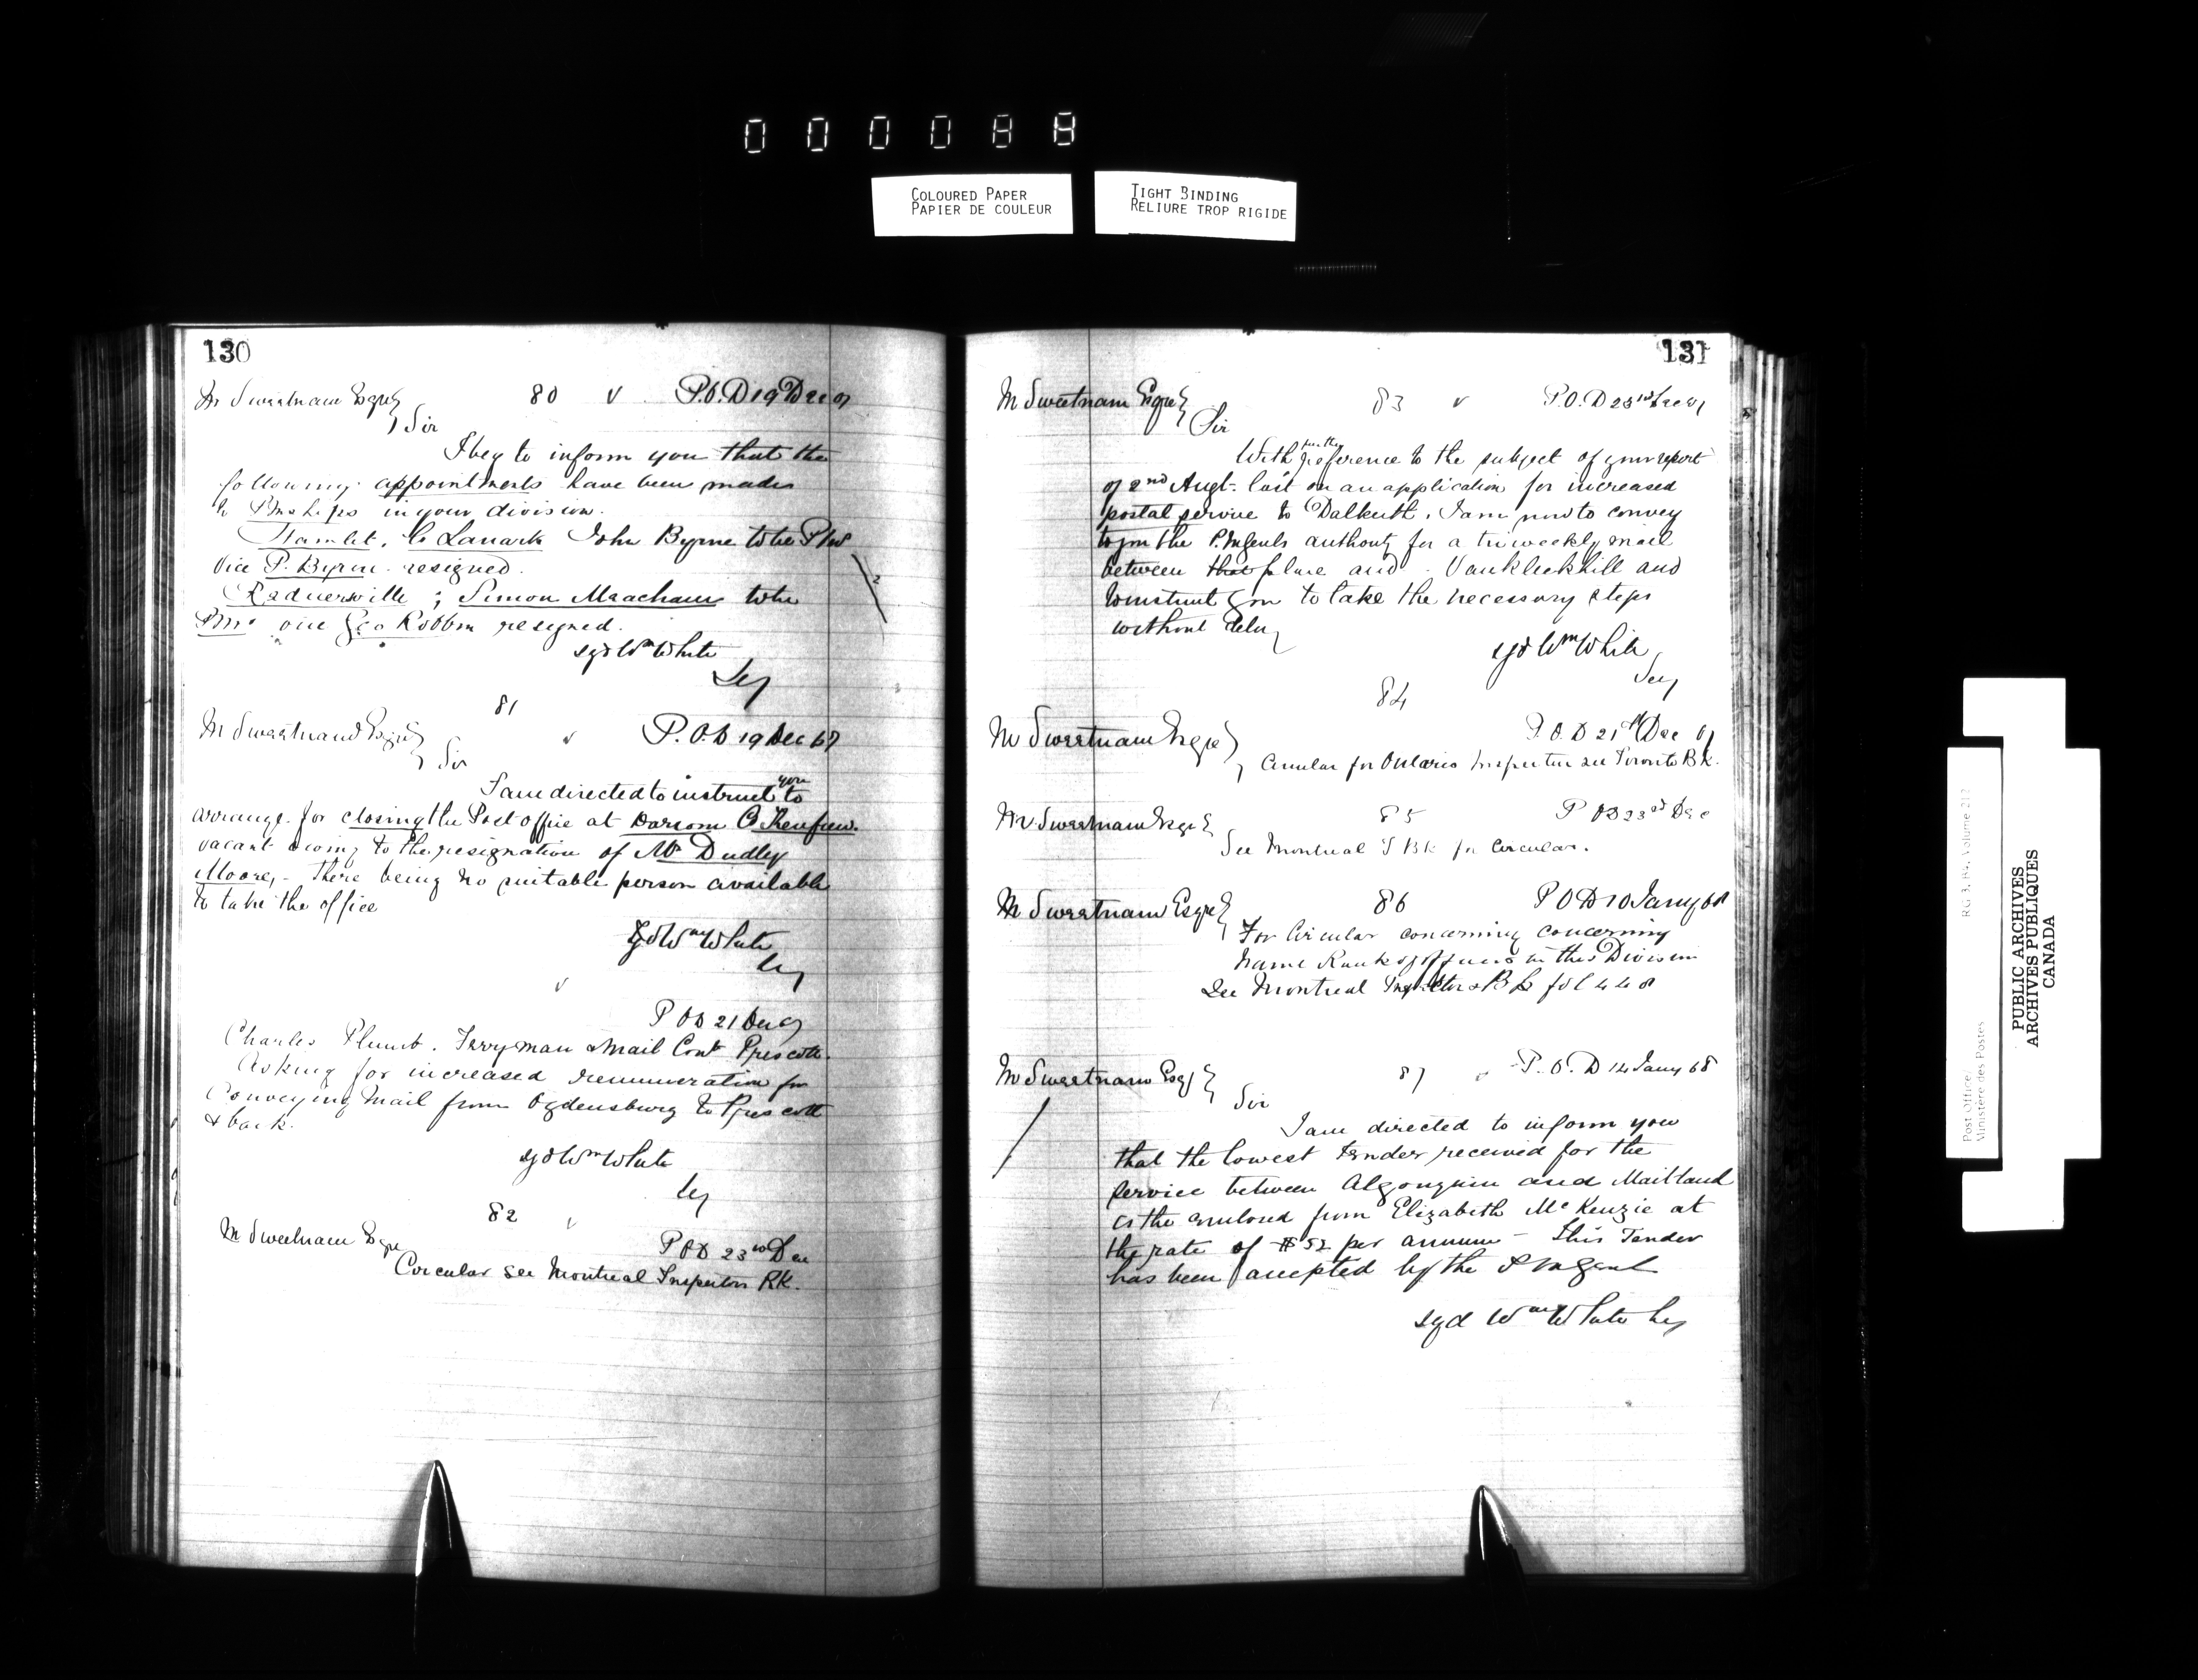 0 0 0 0 8 8
COLOURED PAPER
PAPIER DE COULEUR
TIGHT BINDING
RELIURE TROP RIGIDE
130
M Sweetnam Esqre 80 v P.O.D 19 Dec 67
Sir
I beg to inform you that the
following appointments have been made
to Pmships in your division.
Hamlet, Co Lanark John Byrne to be PM
vice P. Byrne resigned.
Rednersville ; Simon Meacham to be
Pmr vice Geo Robbin resigned.
sgd Wm White
Secy
81
M Sweetnam Esqre v P.O.D 19 Dec 67
Sir
I am directed to instruct you to
arrange for closing the Post office at Co Renfrew.
vacant owing to the resignation of Mr Dudley
Moore, - there being no suitable person available
to take the office
sgd Wm White
Secy
v
P O D 21 Dec 67
Charles Plumb. Ferryman & Mail Cont Prescott.
Asking for increased remuneration for
Conveying Mail from Ogdensburg to Prescott
& back.
sgd Wm White
Secy
82 v
M Sweetnam Esqre P O D 23rd Dec
Circular see Montreal Inspectors BK.
131
M Sweetnam Esqre 83 v P.O.D 23rd Dec 67
Sir
With further reference to the subject of your report
of 2nd Augt. last on an application for increased
postal service to Dalkeith. I am now to convey
to you the P.M Genls authority for a tri weekly mail
between that place and Vankleekhill and
to instruct you to take the necessary steps
without delay
sgd Wm White
Secy
84
M Sweetnam Esqre P.O.D 21st Dec 67
Circular for Ontario Inspector see Toronto BK.
M Sweetnam Esqre 85 P O D 23rd Dec
See Montreal I BK for Circular.
M Sweetnam Esqre 86 P O D 10 Jany 68
For Circular concerning concerning
name Rank of Officers in the Division
See Montreal Inspectors BK fol 448
M Sweetnam Esqr 87 v P.O.D 14 Jany 68
Sir
I am directed to inform you
that the lowest tender received for the
service between Algonquin and Maitland
is the enclosed from Elizabeth McKenzie at
the rate of $52 per annum - this Tender
has been accepted by the P M Genl
sgd Wm White Secy
Post Office/
Ministère des Postes
RG 3, B4, Volume 212
PUBLIC ARCHIVES
ARCHIVES PUBLIQUES
CANADA